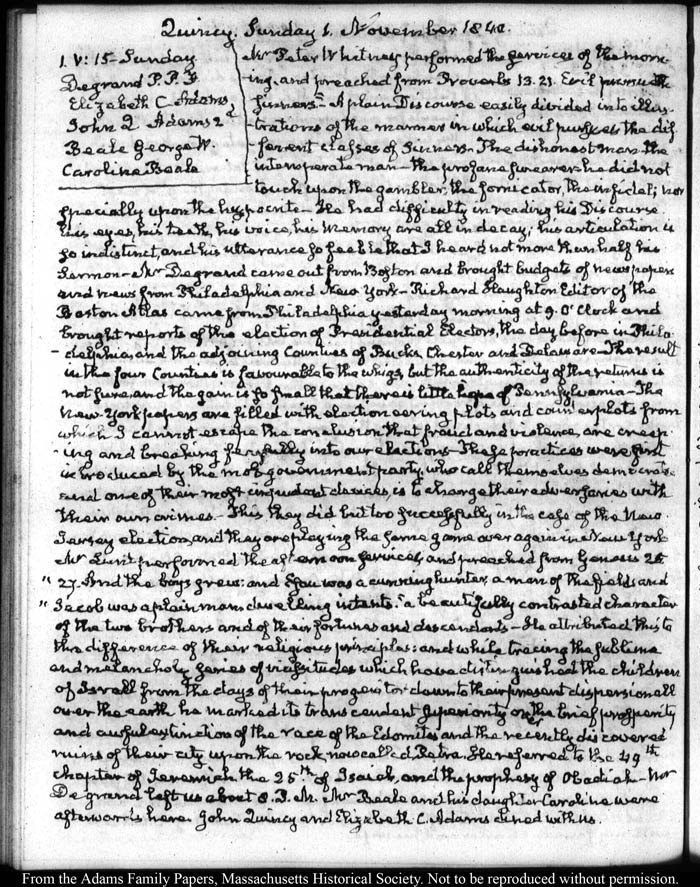 Quincy. Sunday 1. November 1840.
1. V: 15 Sunday
Degrand P. P. F
Elizabeth C. Adams
John Q Adams 2d
Beale George W.
Caroline Beale
Mr Peter Whitney performed the services of the morn-
ing, and preached from Proverbs 13.21. Evil pursueth
sinners - A plain Discourse easily divided into illus-
-trations of the manner in which evil pursues the dif-
-ferent classes of Sinners - The dishonest man the
intemperate man - the profane swearer he did not
touch upon the gambler, the fornicator, the infidel; nor
specially upon the hypocrite - He had difficulty in reading his Discourse
his eyes, his teeth, his voice, his memory are all in decay; his articulation is
so indistinct, and his utterance so feeble that I heard not more than half his
Sermon - Mr Degrand came out from Boston and brought budgets of newspapers
and news from Philadelphia and New York - Richard Haughton Editor of the
Boston Atlas came from Philadelphia yesterday morning at 9. O'Clock and
brought reports of the election of Presidential Electors, the day before in Phila-
-delphia, and the adjoining Counties of Bucks, Chester and Delaware - The result
in the four Counties is favourable to the whigs, but the authenticity of the returns is
not sure, and the gain is so small that there is little hope of Pennsylvania - The
New-York papers are filled with electioneering plots and counterplots from
which I cannot escape the conclusion that fraud and violence, are creep-
-ing and breaking fearfully into our elections - These practices were first
introduced by the mob government party, who call themselves democrats
and one of their most impudent devices, is to charge their adversaries with
their own crimes - This they did but too successfully in the case of the New
Jersey election, and they are playing the same game over again in New York
Mr Lunt performed the afternoon service, and preached from Genesis 25
" 27. And the boys grew: and Esau was a cunning hunter, a man of the field; and
" Jacob was a plain man dwelling in tents." a beautifully contrasted character
of the two brothers and of their fortunes and descendants - He attributed this to
the difference of their religious principles: and while tracing the sublime
and melancholy series of vicissitudes which have distinguished the children
of Israel from the days of their progenitor down to their present dispersion all
over the earth he marked its transcendent superiority over the brief prosperity
and awful extinction of the race of the Edomites and the recently discovered
ruins of their city upon the rock now called Petra. He referred to the 49th
chapter of Jeremiah the 25th of Isaiah, and the prophesy of Obadiah - Mr
Degrand left us about 8. P. M. Mr Beale and his daughter Caroline were
afterwards here. John Quincy and Elizabeth C. Adams dined with us.
From the Adams Family Papers, Massachusetts Historical Society. Not to be reproduced without permission.